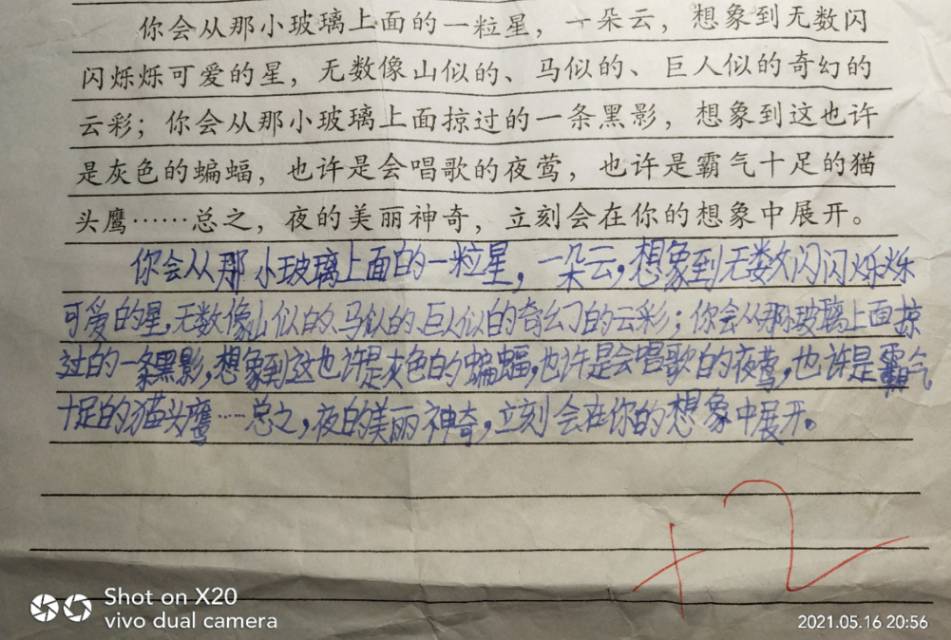 你会从那小玻璃上面的一粒星，一朵云，想象到无数闪
闪烁烁可爱的星，无数像山似的、马似的、巨人似的奇幻的
云彩；你会从那小玻璃上面掠过的一条黑影，想象到这也许
是灰色的蝙蝠，也许是会唱歌的夜莺，也许是霸气十足的猫
头鹰……总之，夜的美丽神奇，立刻会在你的想象中展开。
你会从那小玻璃上面的一粒星，一朵云，想象到无数闪闪烁烁
可爱的星，无数像山似的、马似的、巨人似的奇幻的云彩；你会从那小玻璃上面掠
过的一条黑影，想象到这也许是灰色的蝙蝠，也许是会唱歌的夜莺，也许是霸气
十足的猫头鹰……总之，夜的美丽神奇，立刻会在你的想象中展开。
+2
Shot on X20
vivo dual camera
2021.05.16 20:56